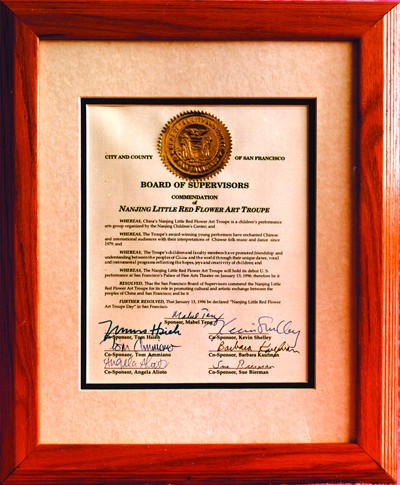 CITY AND COUNTY OF SAN FRANCISCO
BOARD OF SUPERVISORS
COMMENDATION
of
NANJING LITTLE RED FLOWER ART TROUPE
WHEREAS, China's Nanjing Little Red Flower Art Troupe is a children's performance
arts group organized by the Nanjing Children's Center; and
WHEREAS, The Troupe's award-winning young performers have enchanted Chinese
and international audiences with their interpretations of Chinese folk music and dance since
1979; and
WHEREAS, The Troupe's children and faculty members have promoted friendship and
understanding between the peoples of China and the world through their unique dance, vocal
and instrumental programs reflecting the hopes, joys and creativity of children; and
WHEREAS, The Nanjing Little Red Flower Art Troupe will hold its debut U. S.
performance at San Francisco's Palace of Fine Arts Theater on January 13, 1996; therefore be it
RESOLVED, That the San Francisco Board of Supervisors commend the Nanjing Little
Red Flower Art Troupe for its role in promoting cultural and artistic exchange between the
peoples of China and San Francisco; and be it
FURTHER RESOLVED, That January 13, 1996 be declared "Nanjing Little Red Flower
Art Troupe Day" in San Francisco.
Mabel Teng
Sponsor, Mabel Teng
Hsieh Kevin Shelley
Sponsor, Tom Hsieh Co-Sponsor, Kevin Shelley
Tom Ammiano Barbara Kaufman
Co-Sponsor, Tom Ammiano Co-Sponsor, Barbara Kaufman
Angela Alioto Sue Bierman
Co-Sponsor, Angela Alioto Co-Sponsor, Sue Bierman